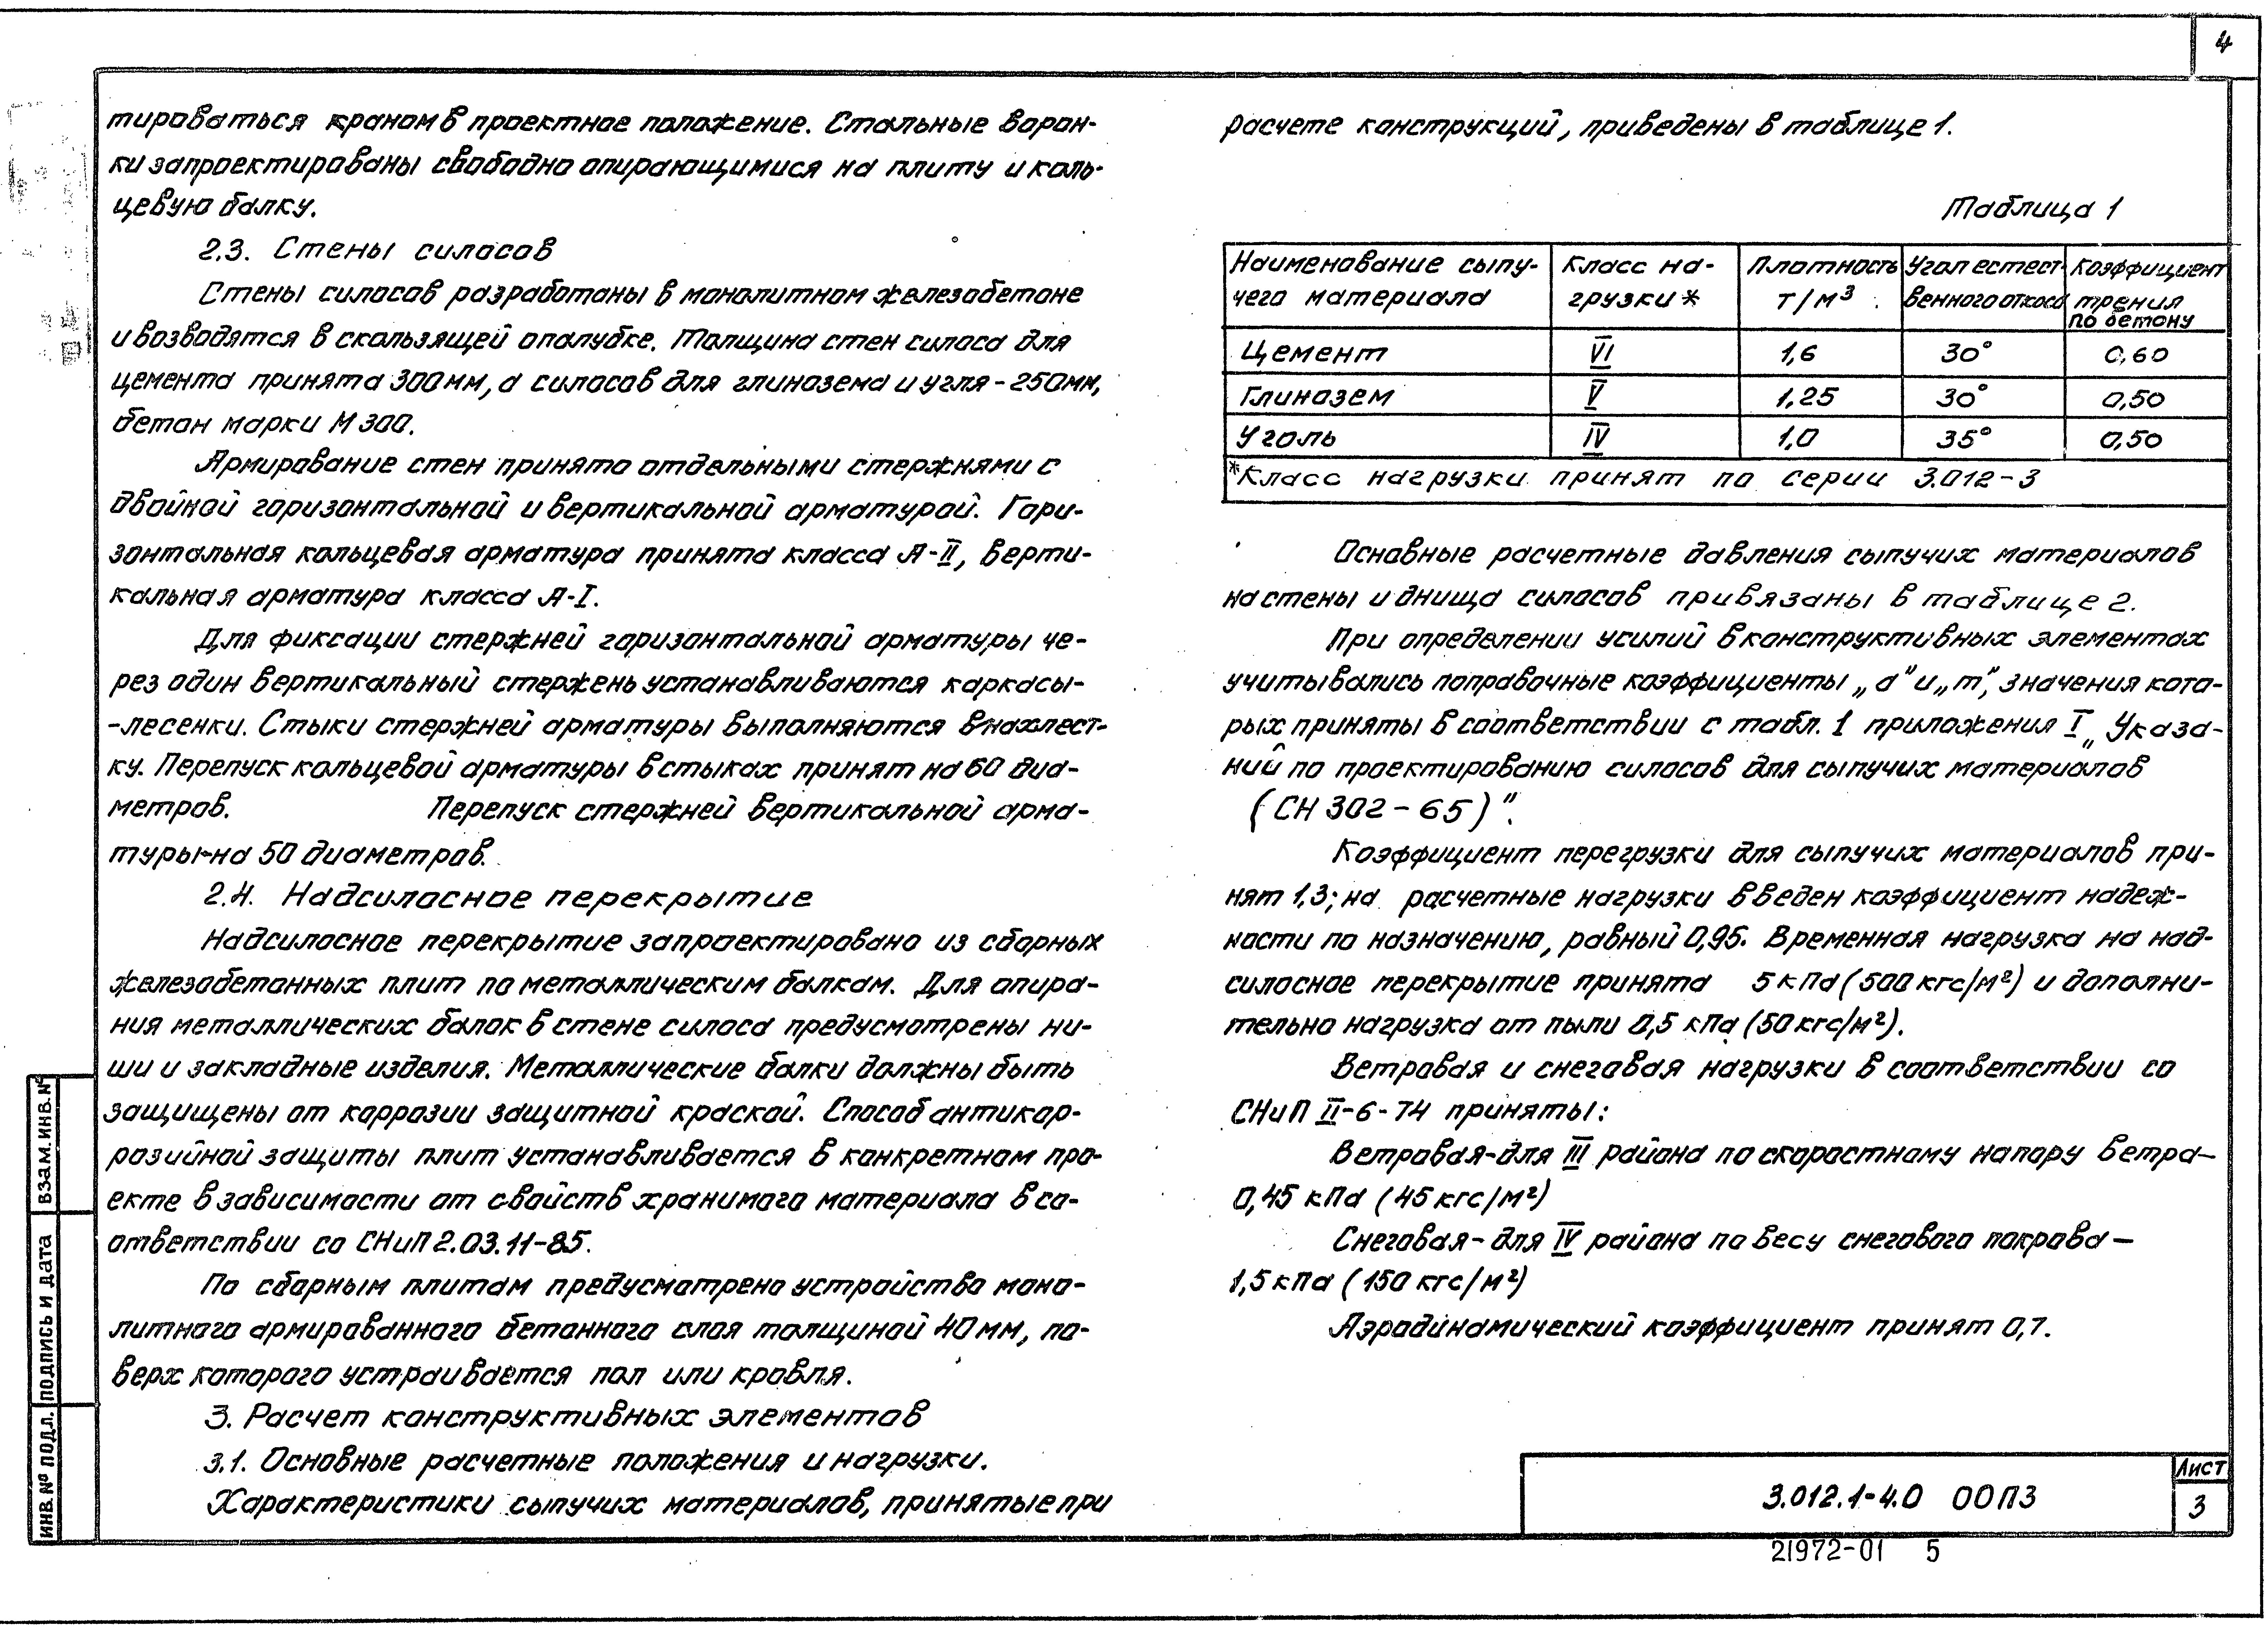 4
тироваться краном в проектное положение. Стальные ворон-
ки запроектированы свободно опирающимися на плиту и коль-
цевую балку.
2.3. Стены силосов
Стены силосов разработаны в монолитном железобетоне
и возводятся в скользящей опалубке. Толщина стен силоса для
цемента принята 300мм, а силосов для глинозема и угля - 250мм,
бетон марки М 300.
Армирование стен принято отдельными стержнями с
двойной горизонтальной и вертикальной арматурой. Гори-
зонтальная кольцевая арматура принята класса А-II, верти-
кальная арматура класса А-I.
Для фиксации стержней горизонтальной арматуры че-
рез один вертикальный стержень устанавливаются каркасы-
-лесенки. Стыки стержней арматуры выполняются внахлест-
ку. Перепуск кольцевой арматуры в стыках принят на 60 диа-
метров. Перепуск стержней вертикальной арма-
туры-на 50 диаметров.
2.4. Надсилосное перекрытие
Надсилосное перекрытие запроектировано из сборных
железобетонных плит по металлическим балкам. Для опира-
ния металлических балок в стене силоса предусмотрены ни-
ши и закладные изделия. Металлические балки должны быть
защищены от коррозии защитной краской. Способ антикор-
розийной защиты плит устанавливается в конкретном про-
екте в зависимости от свойств хранимого материала в со-
ответствии со СНиП 2.03.11-85.
По сборным плитам предусмотрено устройство моно-
литного армированного бетонного слоя толщиной 40мм, по-
верх которого устраивается пол или кровля.
3. Расчет конструктивных элементов
3.1. Основные расчетные положения и нагрузки.
Характеристики сыпучих материалов, принятые при
расчете конструкций, приведены в таблице 1.
Таблица 1
Наименование сыпу- Класс на- Плотность Угол естест- Коэффициент
чего материала грузки* т/м³ венного откоса трения
по бетону
Цемент VI 1,6 30° 0,60
Глинозем V 1,25 30° 0,50
Уголь IV 1,0 35° 0,50
*Класс нагрузки принят по серии 3.012-3
Основные расчетные давления сыпучих материалов
на стены и днища силосов привязаны в таблице 2.
При определении усилий в конструктивных элементах
учитывались поправочные коэффициенты „а" и „m", значения кото-
рых приняты в соответствии с табл. 1 приложения I „Указа-
ний по проектированию силосов для сыпучих материалов
(СН 302-65)".
Коэффициент перегрузки для сыпучих материалов при-
нят 1,3; на расчетные нагрузки введен коэффициент надеж-
ности по назначению, равный 0,95. Временная нагрузка на над-
силосное перекрытие принята 5 кПа (500 кгс/м²) и дополни-
тельно нагрузка от пыли 0,5 кПа (50 кгс/м²).
Ветровая и снеговая нагрузки в соответствии со
СНиП II-6-74 приняты:
Ветровая-для III района по скоростному напору ветра-
0,45 кПа (45 кгс/м²)
Снеговая-для IV района по весу снегового покрова-
1,5 кПа (150 кгс/м²)
Аэродинамический коэффициент принят 0,7.
ВЗАМ. ИНВ. №
ПОДПИСЬ И ДАТА
ИНВ. № ПОДЛ.
3.012.1-4.0 00ПЗ
Лист
3
21972-01 5